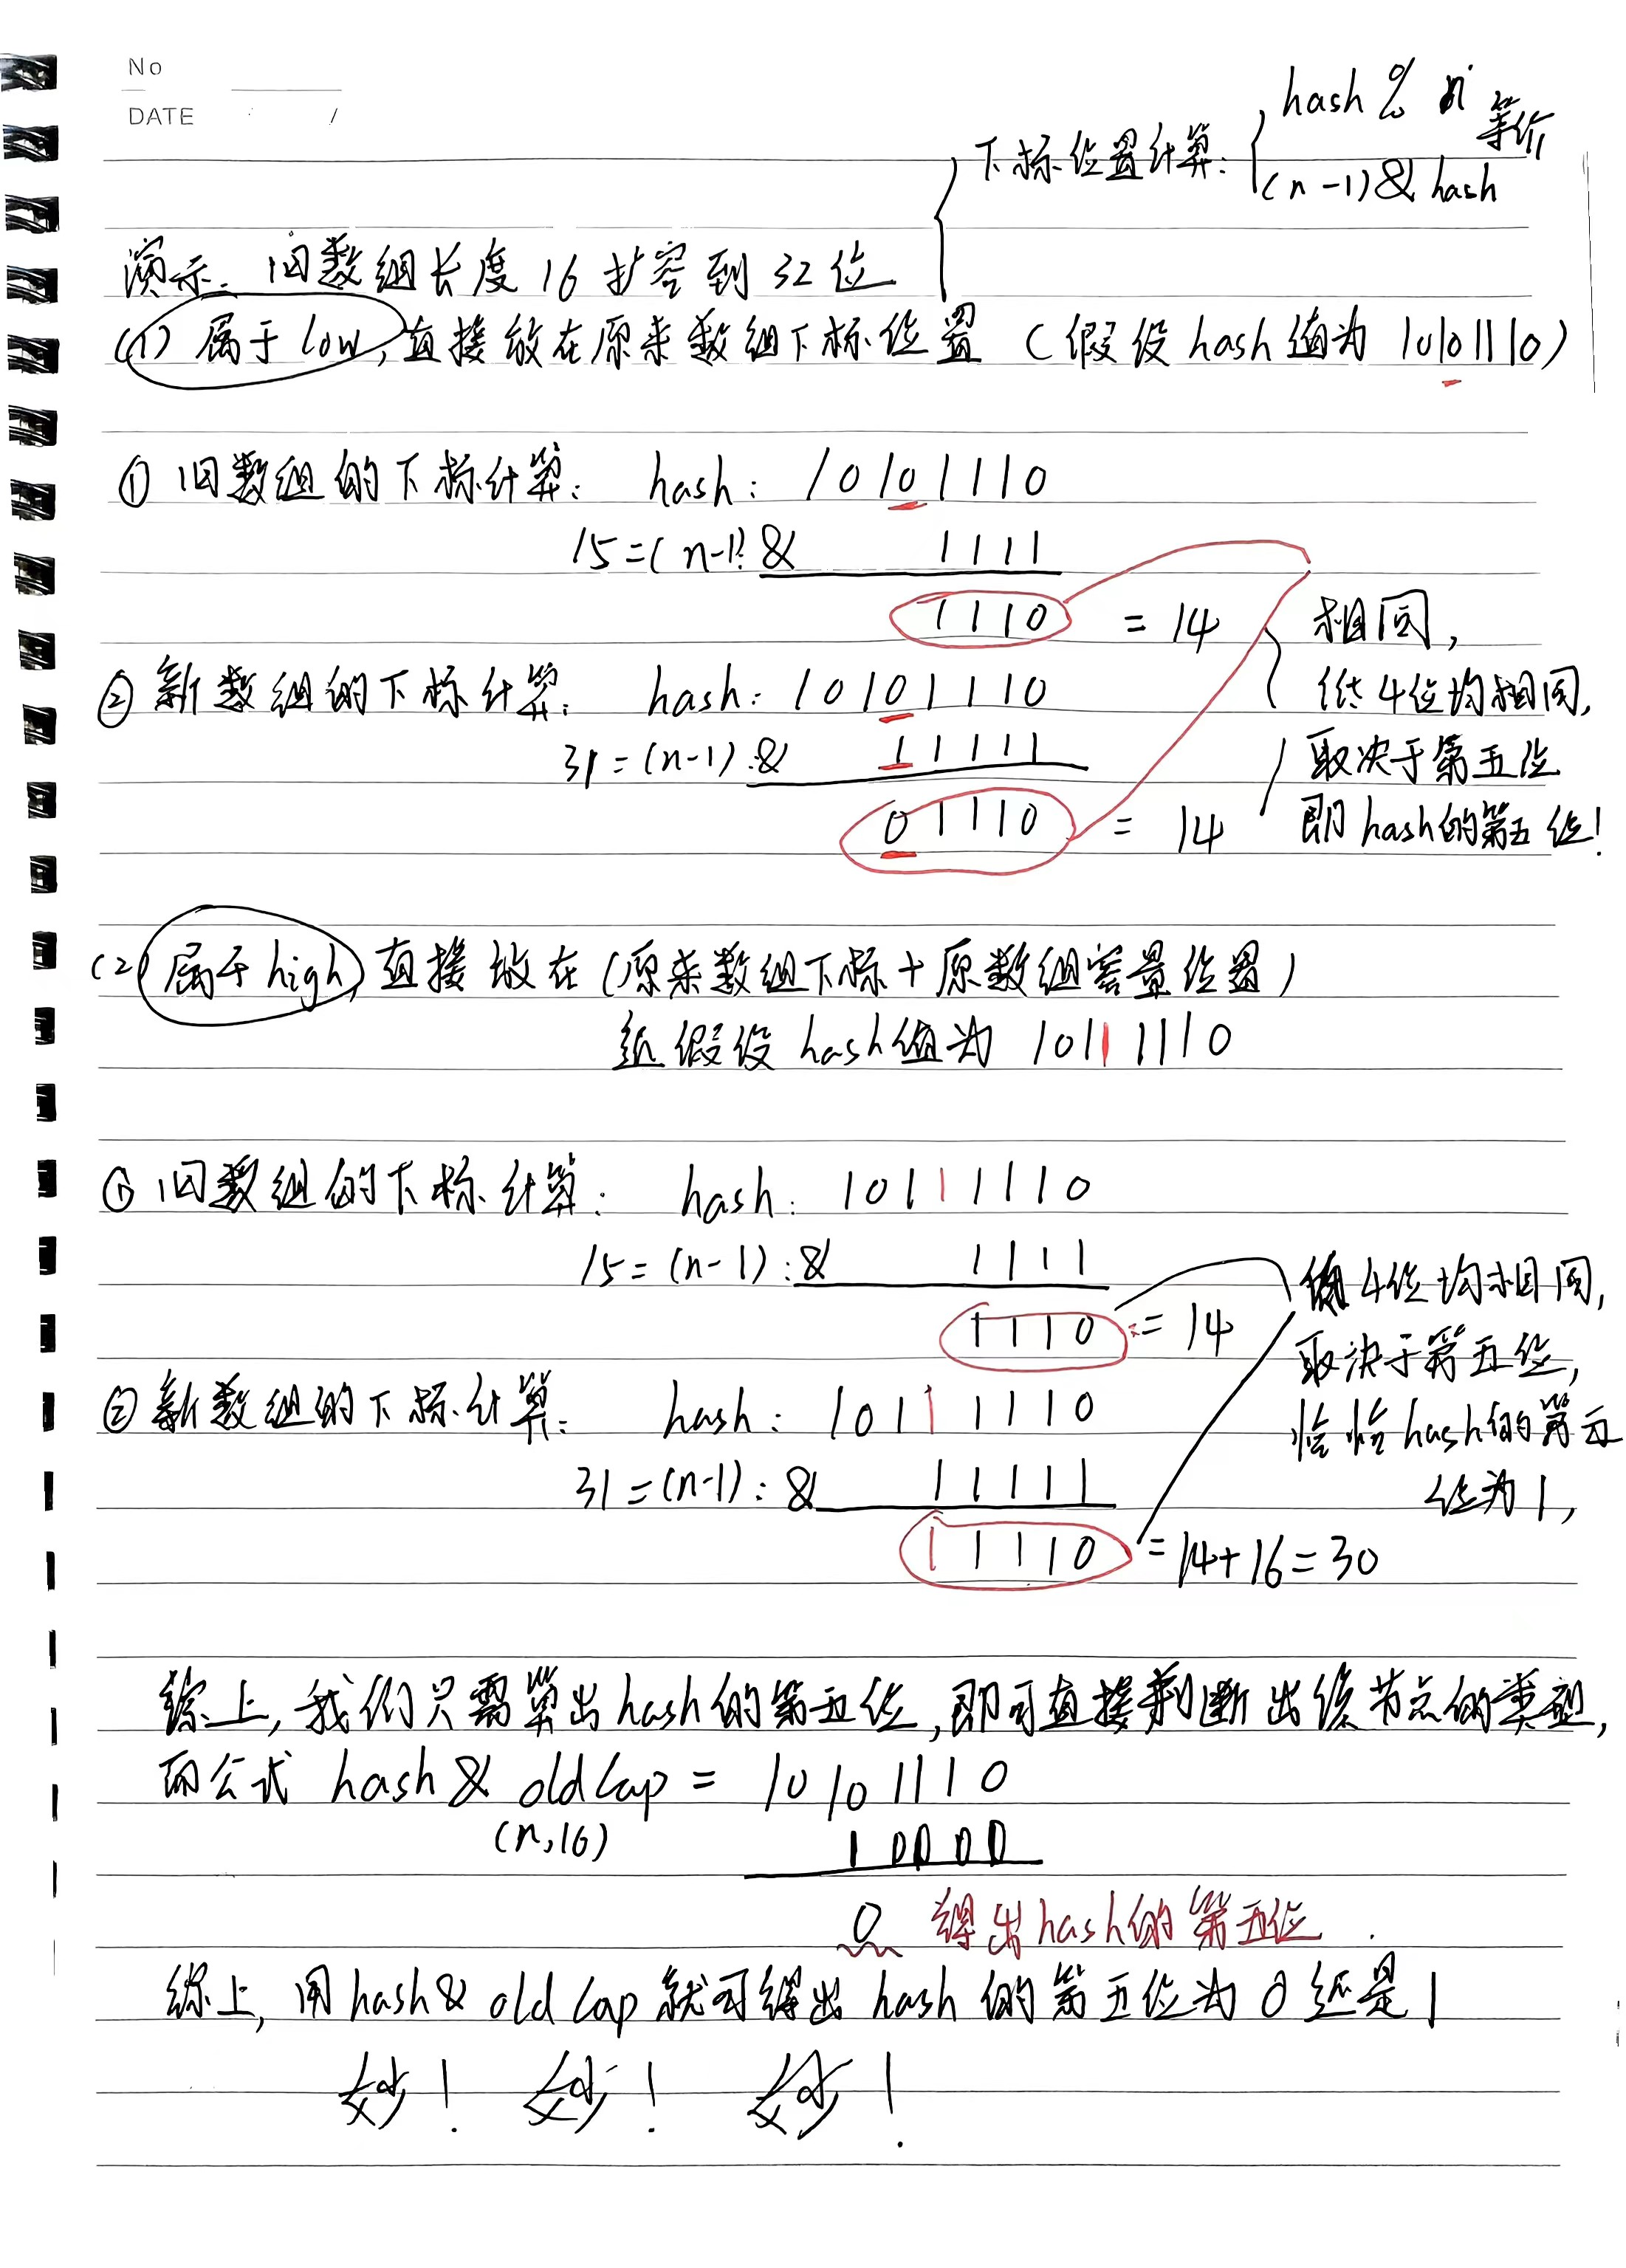 No
DATE /
下标位置计算: hash % n 等价
(n-1) & hash
演示. 旧数组长度 16 扩容到 32 位
(1) 属于 low, 直接放在原来数组下标位置 (假设 hash 值为 10101110)
① 旧数组的下标计算: hash: 10101110
15=(n-1) & 1111
1110 = 14
相同,
低 4位均相同,
取决于第五位
即 hash的第五位!
② 新数组的下标计算: hash: 10101110
31=(n-1): & 11111
01110 = 14
(2) 属于 high, 直接放在 (原来数组下标 + 原数组容量位置)
假设 hash值为 10111110
① 旧数组的下标计算: hash: 10111110
15=(n-1): & 1111
1110 = 14
4位均相同,
取决于第五位,
恰恰 hash的第五
位为1,
② 新数组的下标计算: hash: 10111110
31=(n-1): & 11111
11110 = 14+16=30
综上, 我们只需算出 hash的第五位, 即可直接判断出该节点的类型,
而公式 hash & oldCap = 10101110
(n,16) 10000
0 得出 hash的第五位.
综上, 用 hash & oldCap 就可得出 hash 的第五位为 0 还是 1
妙! 妙! 妙!